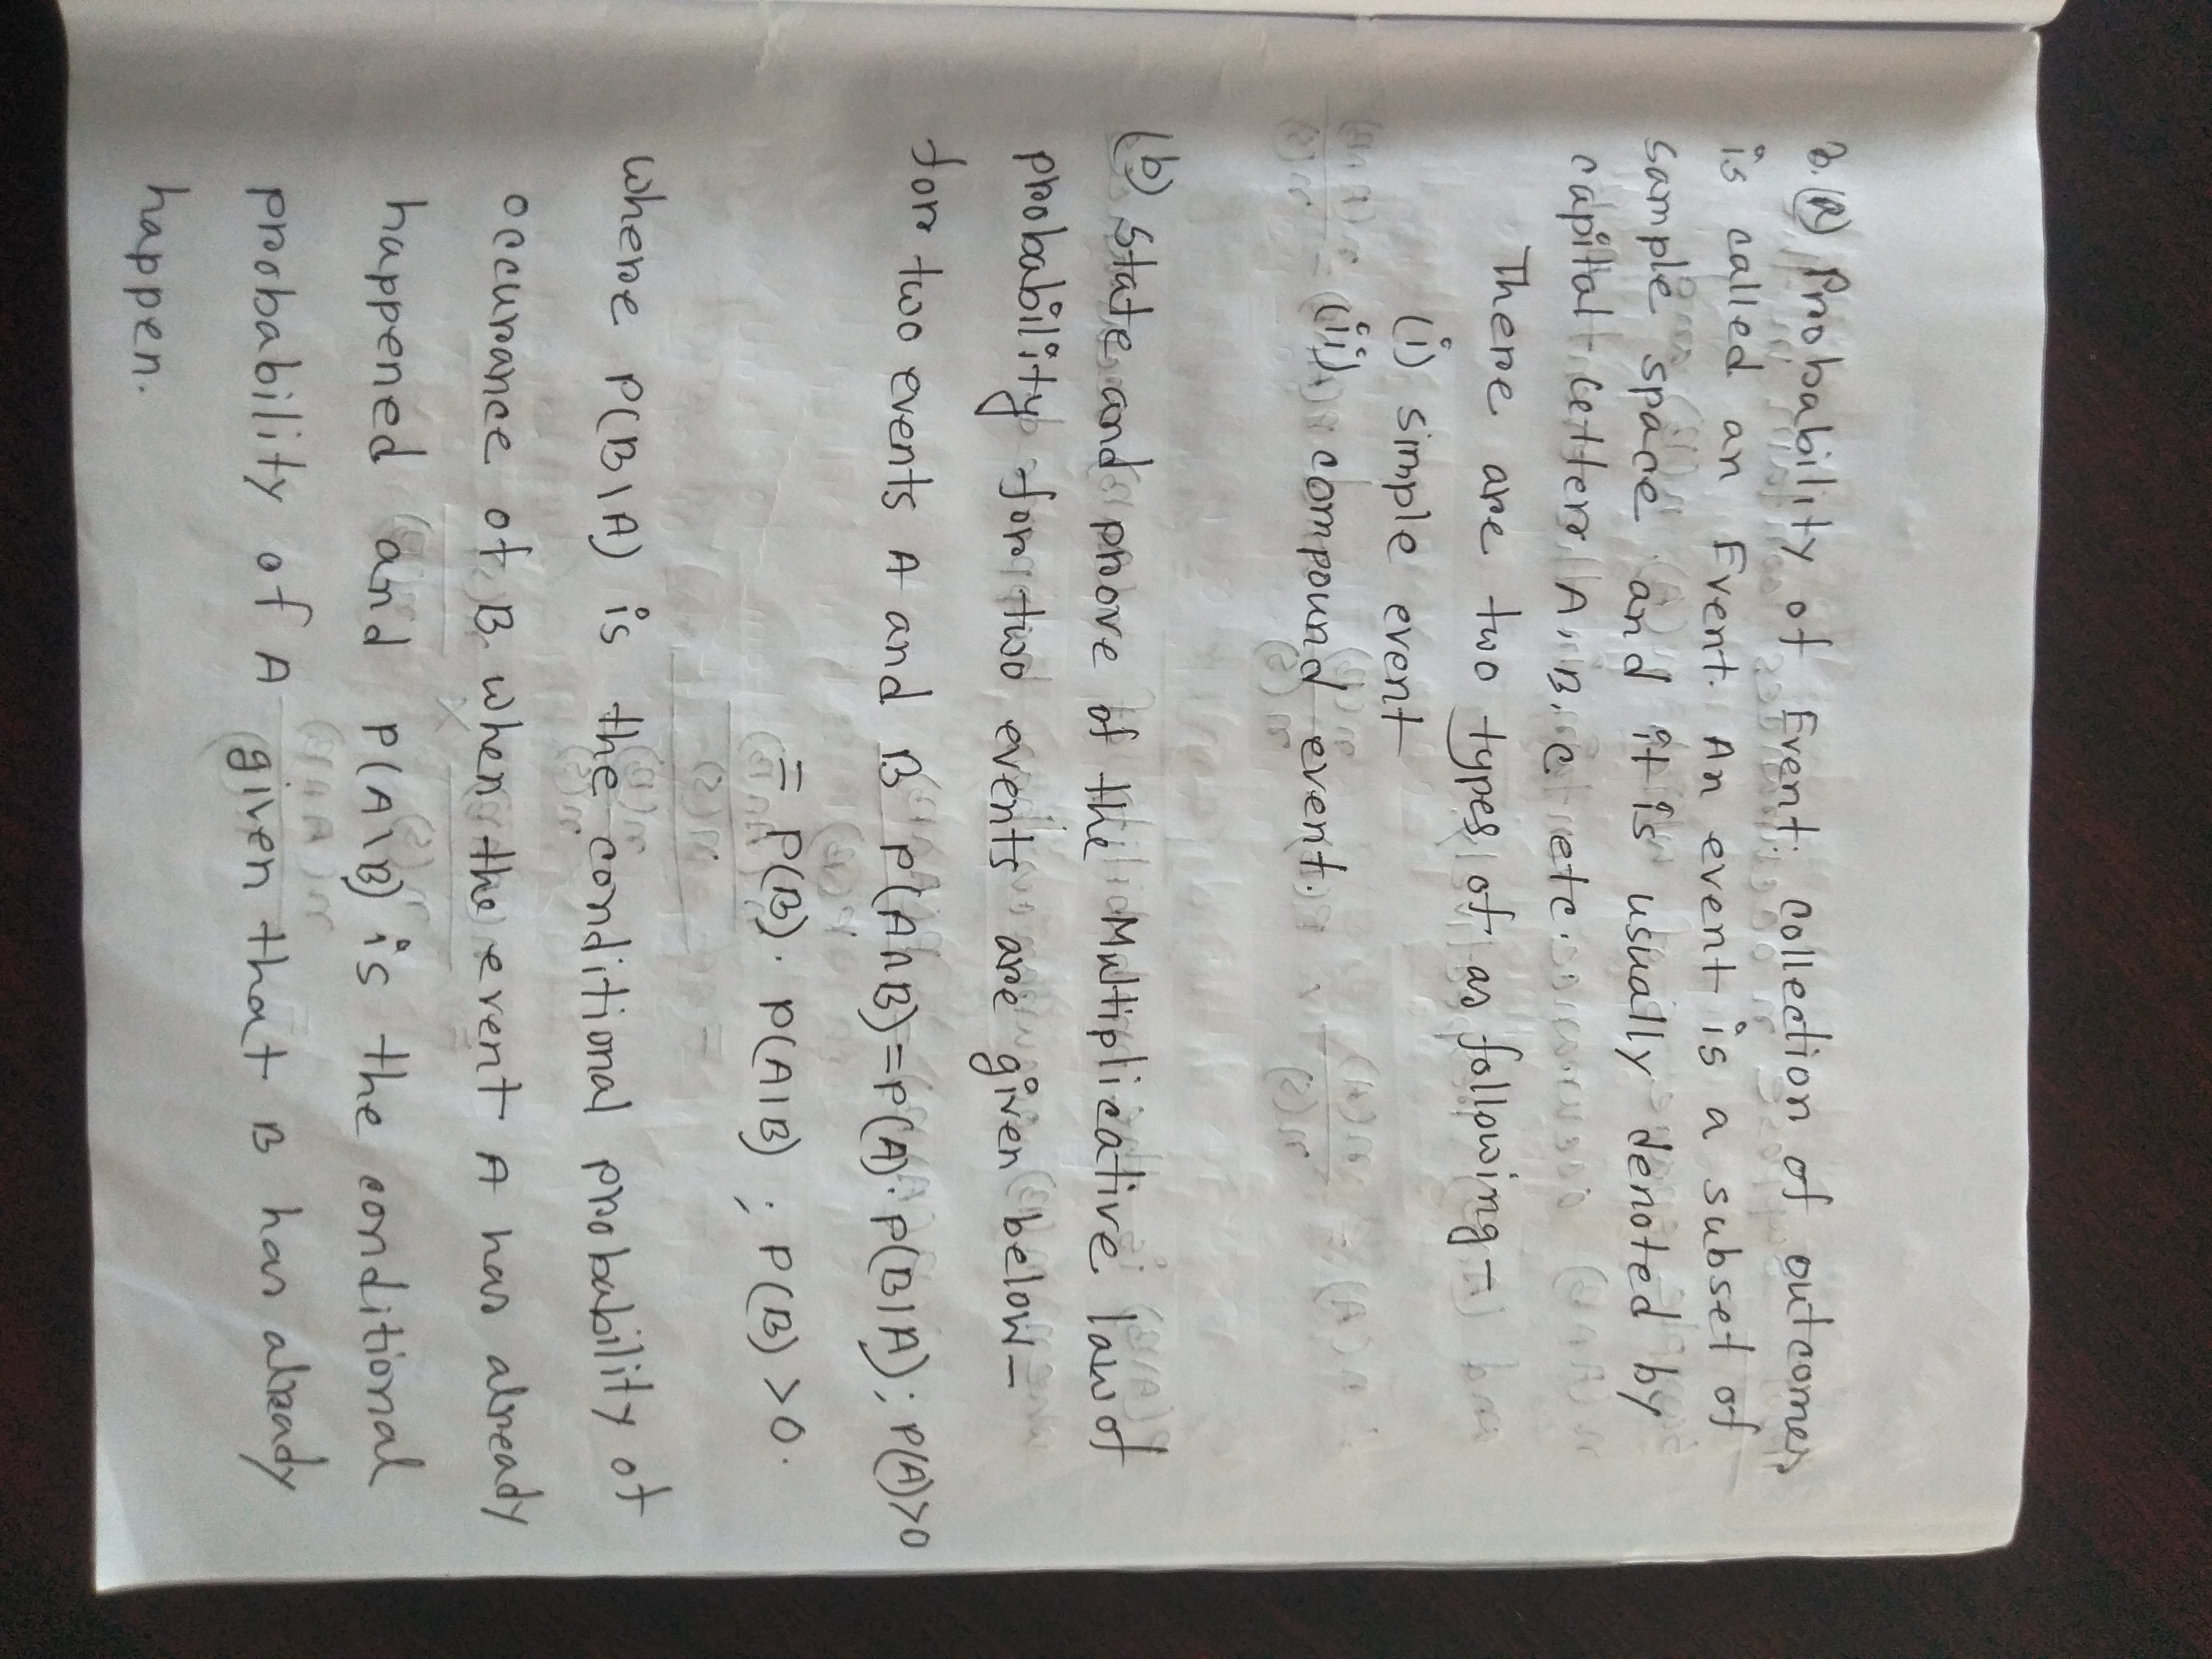 3. (a) Probability of Event: collection of outcomes
is called an Event. An event is a subset of
sample space and it is usually denoted by
capital letters A, B, C etc.
There are two types of as following-
(i) simple event
(ii) compound event.
(b) State and prove of the Multiplicative law of
probability for two events are given below-
for two events A and B P(A∩B)=P(A).P(B|A); P(A)>0
= P(B). P(A|B) ; P(B) >0.
where P(B\A) is the conditional probability of
occurance of B when the event A has already
happened and P(A\B) is the conditional
probability of A given that B has already
happen.